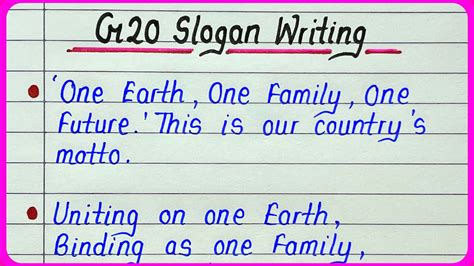 G20 Slogan Writing
'One Earth, One Family, One
Future.' This is our country's
motto.
Uniting on one Earth,
Binding as one Family,